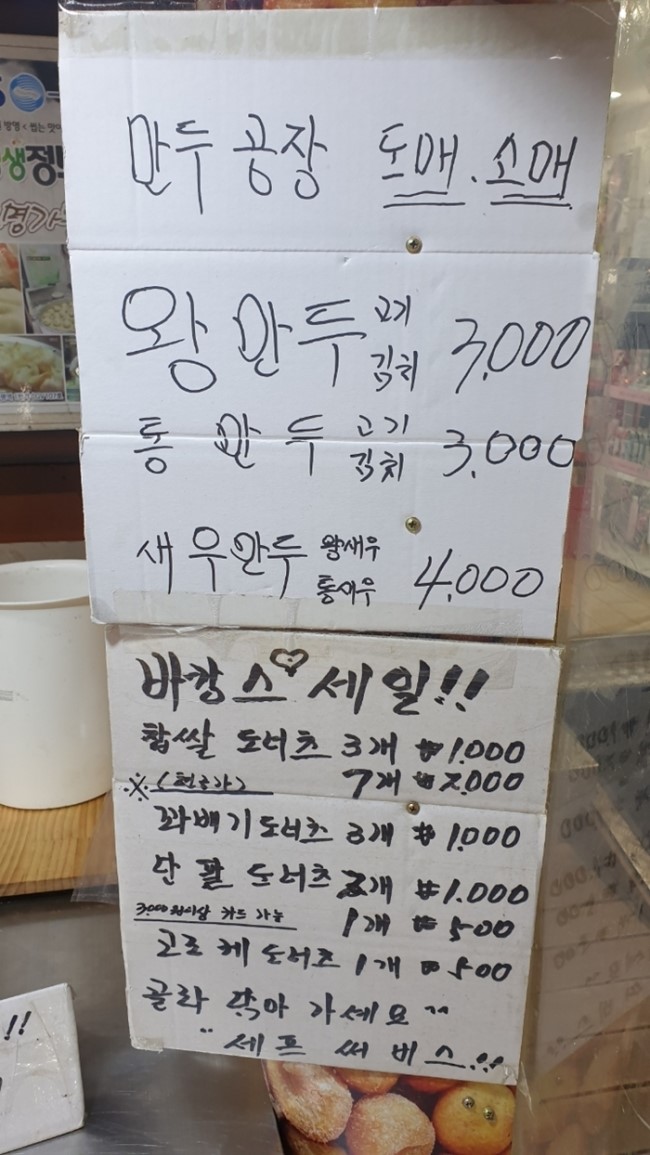 만두공장 도매.소매
왕만두 고기 김치 3,000
통만두 고기 김치 3,000
새우만두 왕새우 통새우 4,000
바캉스 세일!!
찹쌀 도너츠 3개 ₩1.000
※(현금가) 7개 ₩2.000
꽈배기도너츠 3개 ₩1.000
단팥 도너츠 2개 ₩1.000
3.000원이상 카드 가능 1개 ₩500
고로케 도너츠 1개 ₩500
골라 담아 가세요"
"세프 써비스.!!
생정보
!!